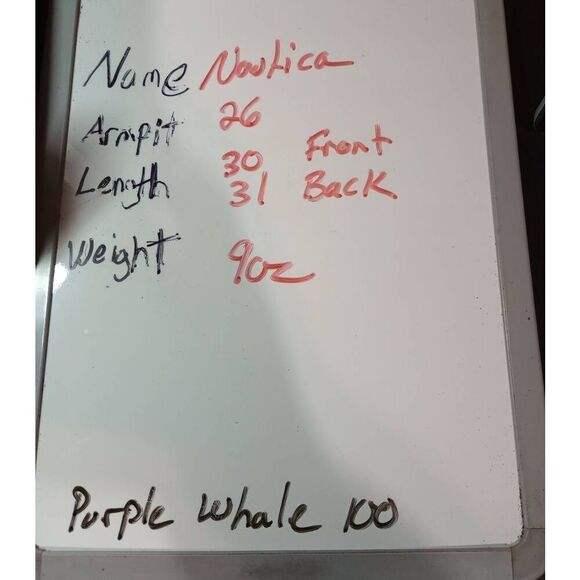 Name Nautica
Armpit 26
Length 30 Front
31 Back
Weight 9oz
Purple Whale 100